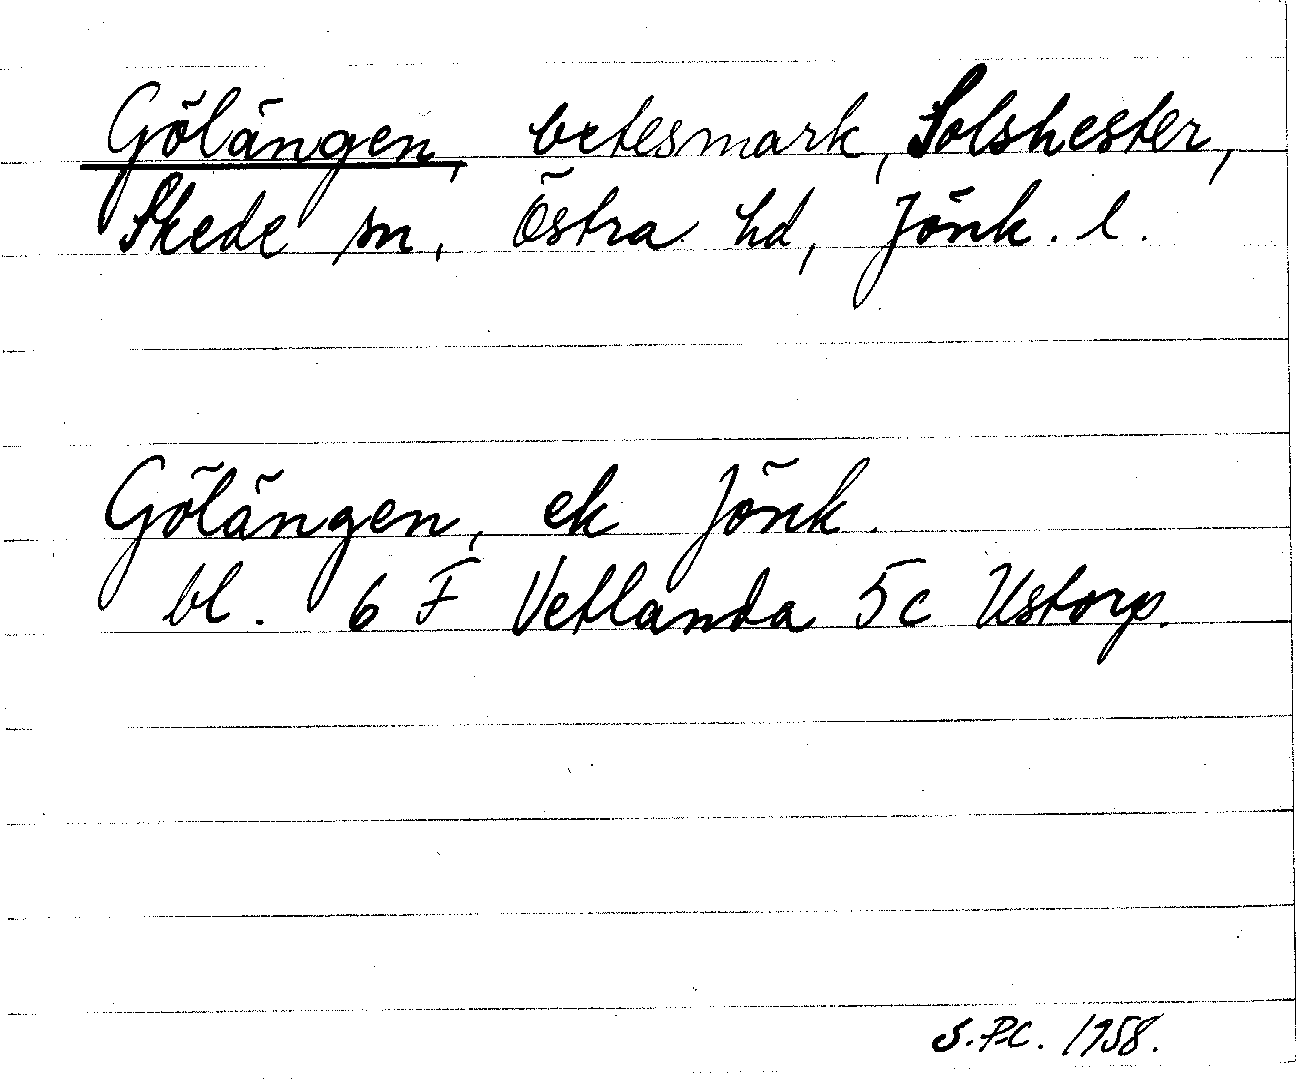 Gölängen, betesmark, Solshester,
Skede sn, Östra hd, Jönk. l.
Gölängen, ek Jönk.
bl. 6 F Vetlanda 5c Ustorp.
S.P.C. 1958.